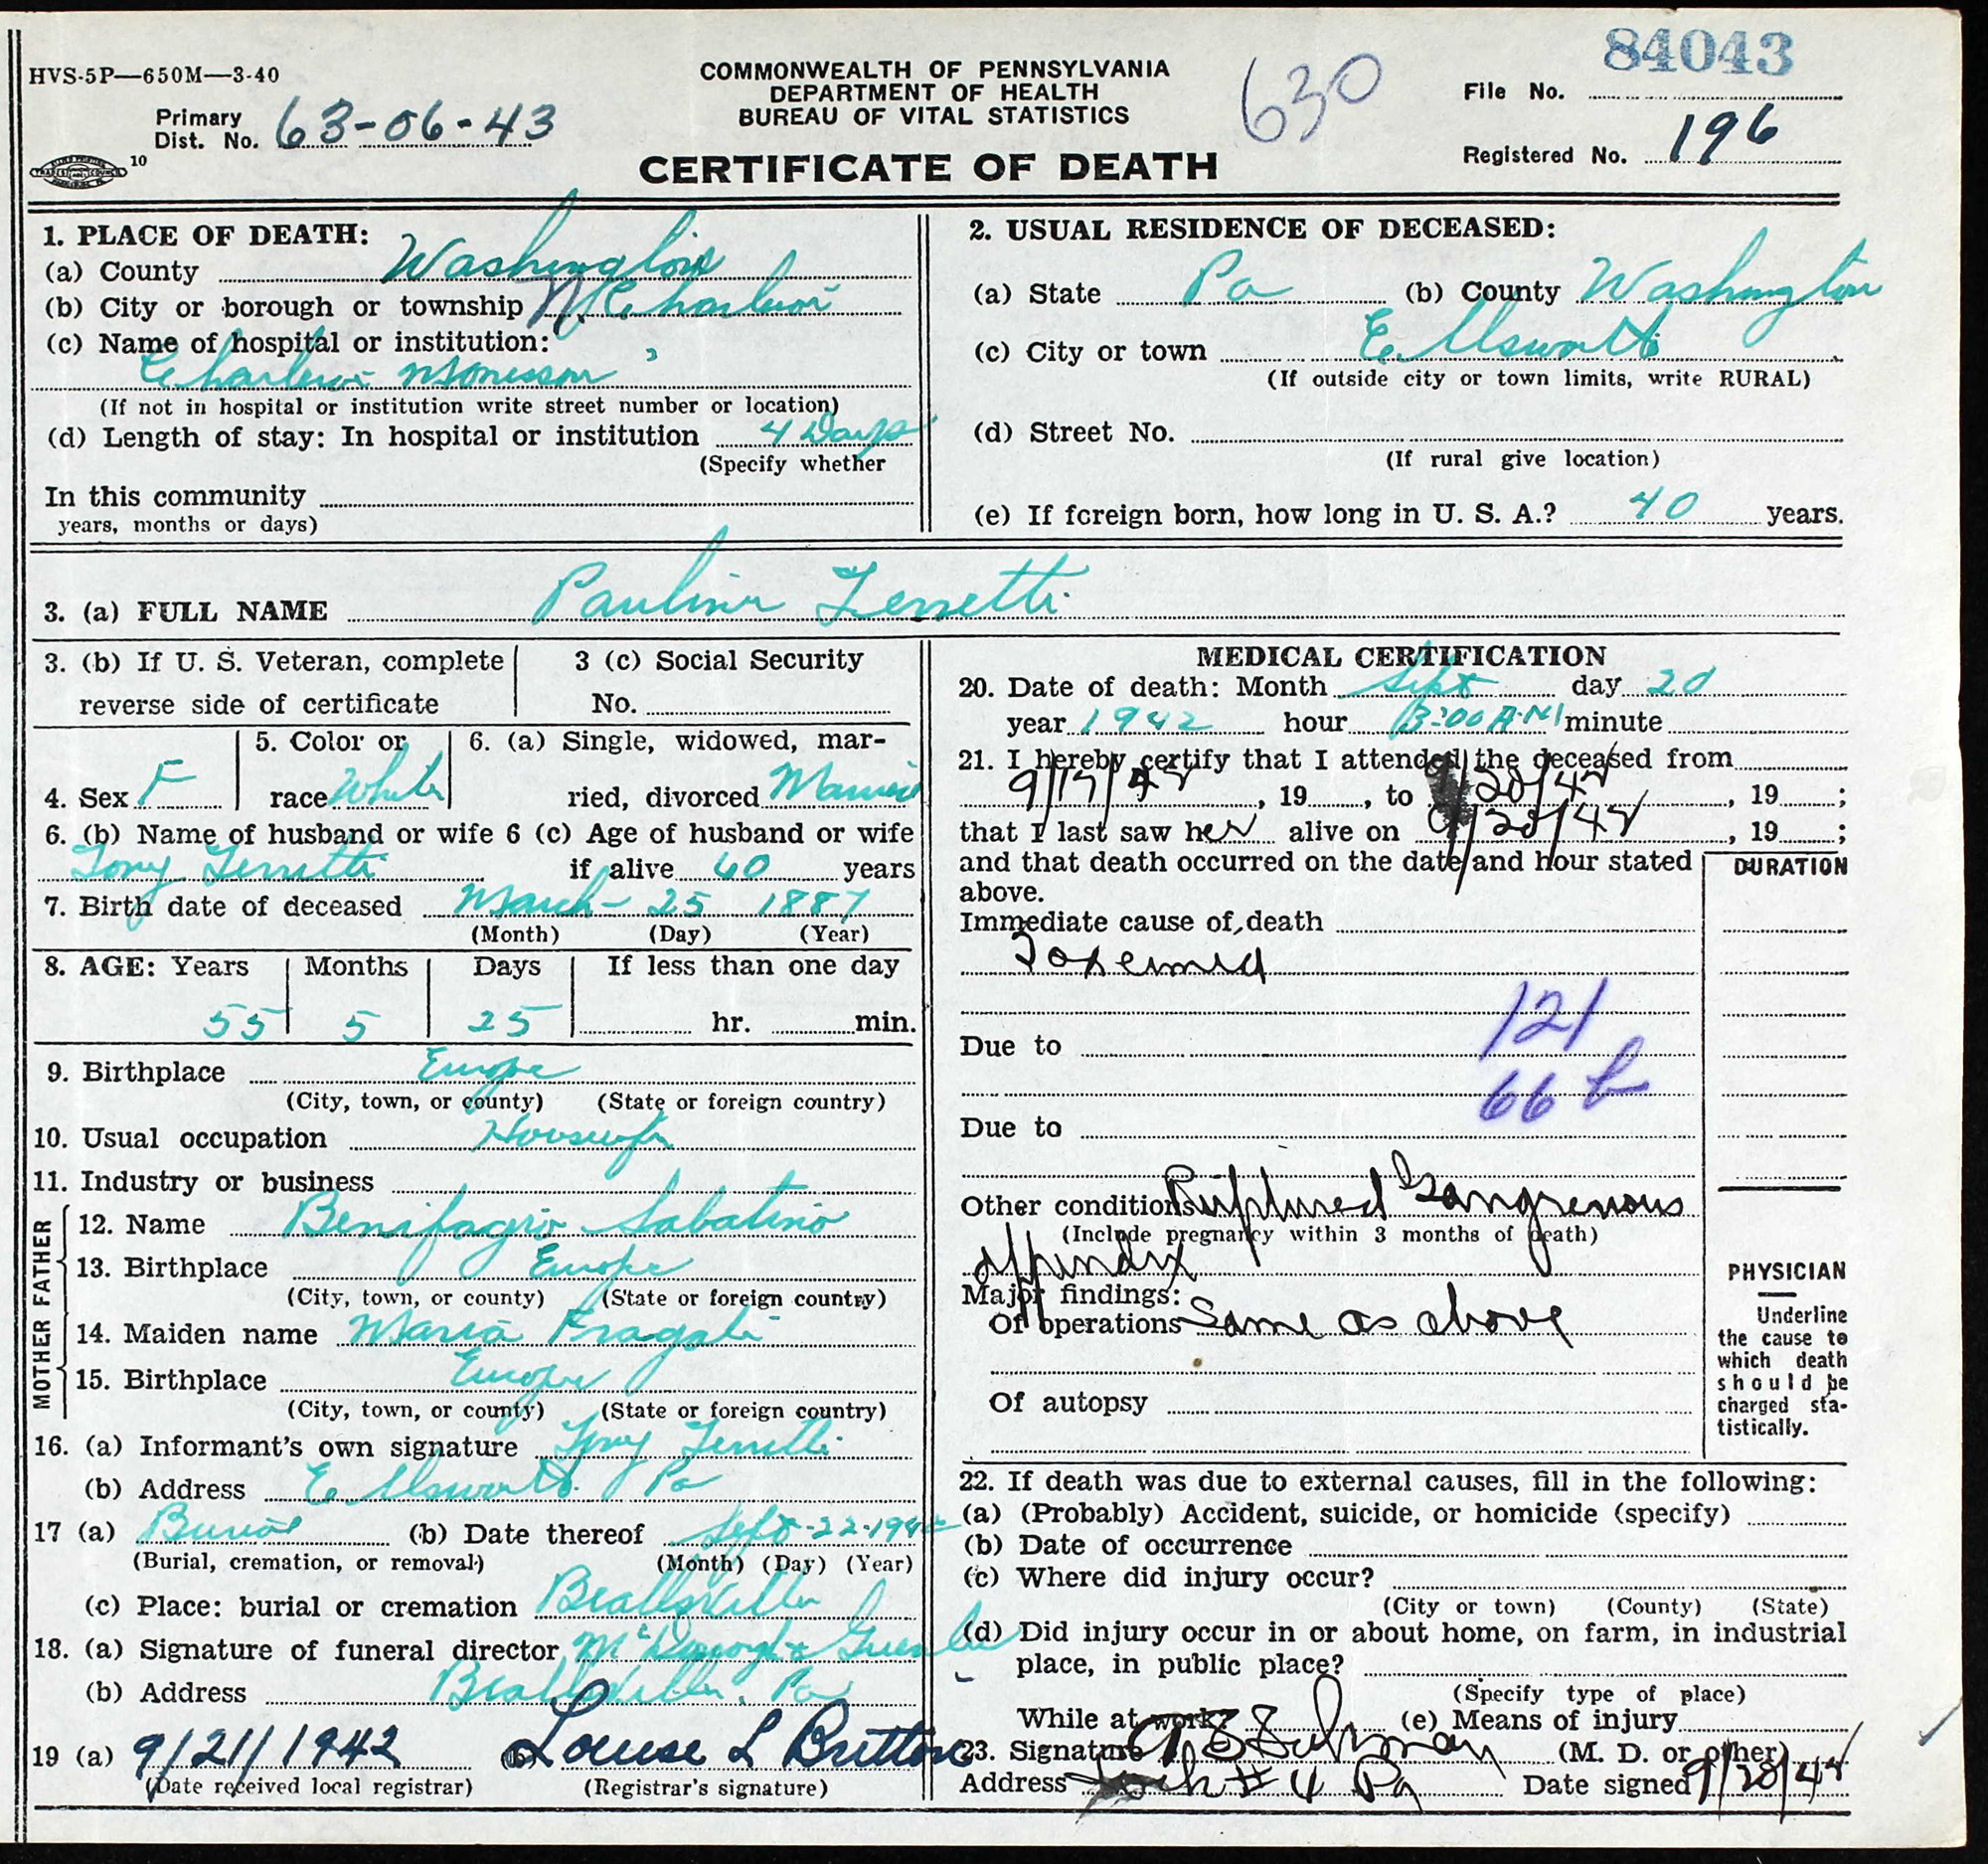 HVS-5P—650M—3-40
COMMONWEALTH OF PENNSYLVANIA
DEPARTMENT OF HEALTH
BUREAU OF VITAL STATISTICS
630
84043
File No.
Primary
Dist. No. 63-06-43
Registered No. 196
10
CERTIFICATE OF DEATH
1. PLACE OF DEATH:
(a) County Washington
(b) City or borough or township N. Charleroi
(c) Name of hospital or institution:
Charleroi Monessen
(If not in hospital or institution write street number or location)
(d) Length of stay: In hospital or institution 4 Days
(Specify whether
In this community
years, months or days)
2. USUAL RESIDENCE OF DECEASED:
(a) State Pa (b) County Washington
(c) City or town Ellsworth
(If outside city or town limits, write RURAL)
(d) Street No.
(If rural give location)
(e) If foreign born, how long in U. S. A.? 40 years.
3. (a) FULL NAME Paulina
3. (b) If U. S. Veteran, complete
reverse side of certificate
3 (c) Social Security
No.
4. Sex F
5. Color or
race White
6. (a) Single, widowed, mar-
ried, divorced Married
6. (b) Name of husband or wife 6 (c) Age of husband or wife
Tony if alive 60 years
7. Birth date of deceased March - 25 1887
(Month) (Day) (Year)
8. AGE: Years Months Days If less than one day
55 5 25 hr. min.
9. Birthplace Europe
(City, town, or county) (State or foreign country)
10. Usual occupation Housewife
11. Industry or business
FATHER
12. Name Benifagro Sabatino
13. Birthplace Europe
(City, town, or county) (State or foreign country)
MOTHER
14. Maiden name Maria Fragali
15. Birthplace Europe
(City, town, or county) (State or foreign country)
16. (a) Informant's own signature Tony
(b) Address Ellsworth Pa
17 (a) Burial (b) Date thereof Sept-22-1942
(Burial, cremation, or removal) (Month) (Day) (Year)
(c) Place: burial or cremation Beallsville
18. (a) Signature of funeral director McDonough & Greenlee
(b) Address Beallsville, Pa
19 (a) 9/21/1942 (b) Louise L Britton
(Date received local registrar) (Registrar's signature)
MEDICAL CERTIFICATION
20. Date of death: Month Sept day 20
year 1942 hour 3:00 A.M minute
21. I hereby certify that I attended the deceased from
9/17/42, 19, to 9/20/42, 19;
that I last saw her alive on 9/20/42, 19;
and that death occurred on the date and hour stated
above.
DURATION
Immediate cause of death
Toxemia
121
Due to
66 b
Due to
Other conditions Ruptured Gangrenous
(Include pregnancy within 3 months of death)
appendix
Major findings:
Of operations Same as above
Of autopsy
PHYSICIAN
Underline
the cause to
which death
should be
charged sta-
tistically.
22. If death was due to external causes, fill in the following:
(a) (Probably) Accident, suicide, or homicide (specify)
(b) Date of occurrence
(c) Where did injury occur?
(City or town) (County) (State)
(d) Did injury occur in or about home, on farm, in industrial
place, in public place?
(Specify type of place)
While at work? (e) Means of injury
23. Signature (M. D. or other)
Address # 4 Pa Date signed 9/20/42